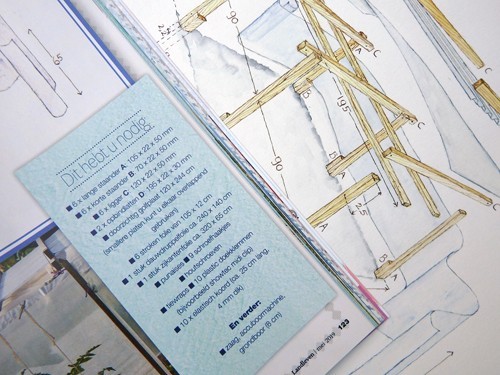 Dit hebt u nodig
■ 6 x lange staander A: 105 x 22 x 50 mm
■ 6 x korte staander B: 70 x 22 x 50 mm
■ 6 x ligger C: 120 x 22 x 50 mm
■ 2 x opbindlatten D: 195 x 22 x 30 mm
■ doorzichtig golfplaat 120 x 244 cm
(smallere platen kunt u elkaar overlappend
gebruiken)
■ 6 stroken folie van 105 x 12 cm
■ 1 stuk dauwdruppelfolie ca. 240 x 140 cm
■ 1 stuk zijkantenfolie ca. 320 x 65 cm
■ punaises ■ 9 schroefhaakjes
■ houtschroeven
■ tiewraps ■ 10 plastic doekklemmen
(bijvoorbeeld showtec midi clip)
■ 10 x elastisch koord (ca. 25 cm lang,
4 mm dik)
En verder:
■ zaag, accuboormachine,
grondboor (8 cm)
Landleven / mei 2019 123
90
195
90
25
A
C
A
C
B
C
B